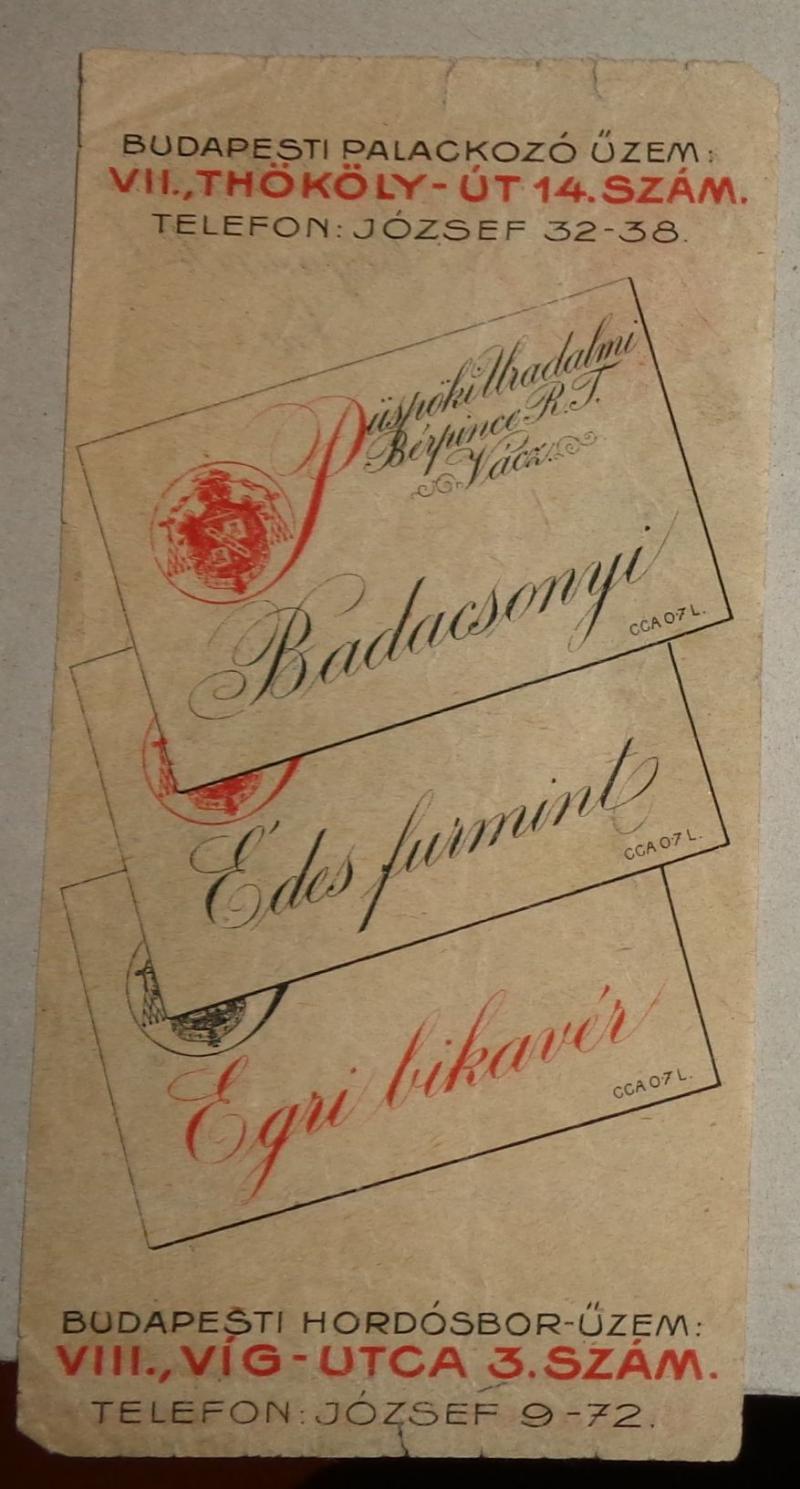 BUDAPESTI PALACKOZÓ ŰZEM:
VII., THÖKÖLY-ÚT 14. SZÁM.
TELEFON: JÓZSEF 32-38.
Püspöki Uradalmi
Bérpince R.T.
Vácz.
Badacsonyi
CCA 0·7 L.
Édes furmint
CCA 0·7 L.
Egri bikavér
CCA 0·7 L.
BUDAPESTI HORDÓSBOR-ŰZEM:
VIII., VÍG-UTCA 3. SZÁM.
TELEFON: JÓZSEF 9-72.